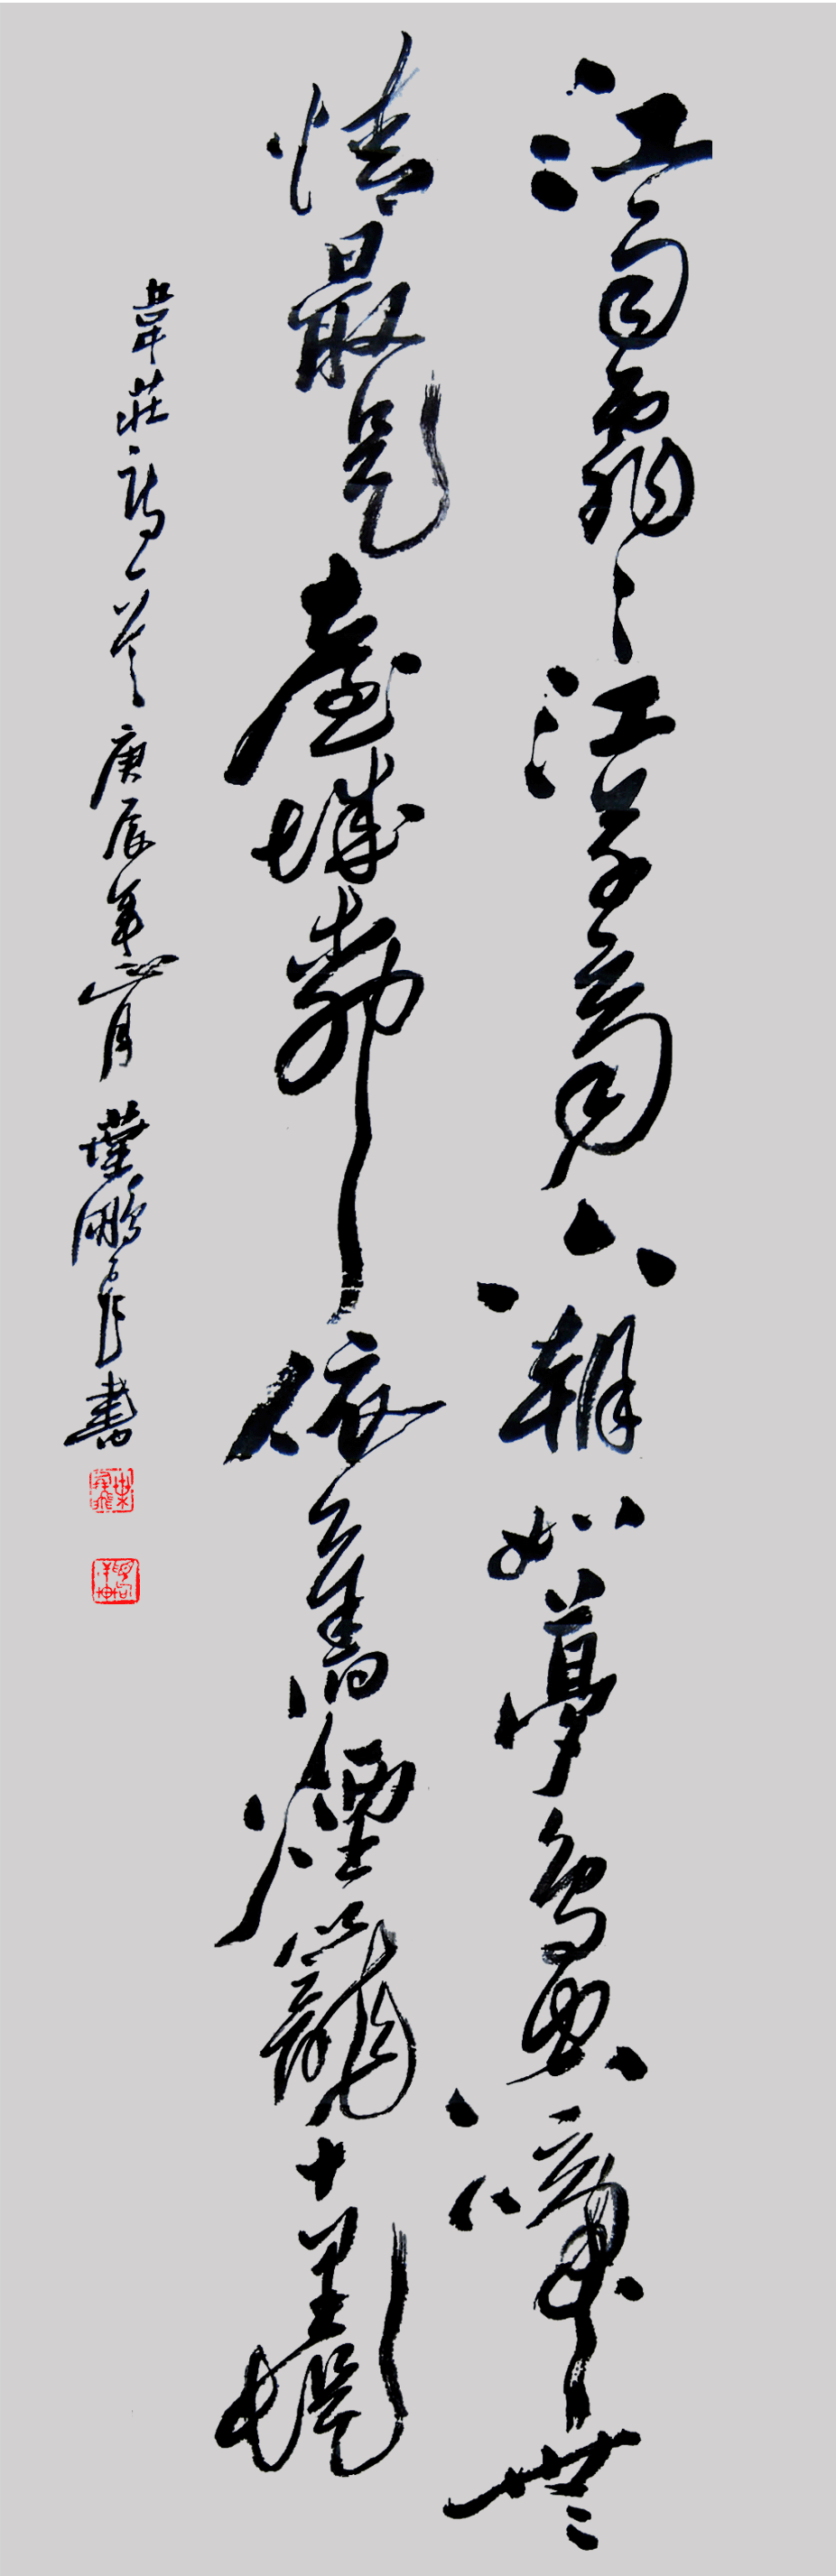 江雨霏〻江草齊六朝如夢鳥空啼無
情最是臺城柳依舊煙籠十里堤
韋莊詩一首庚辰年月葉鵬飛書
葉鵬飛